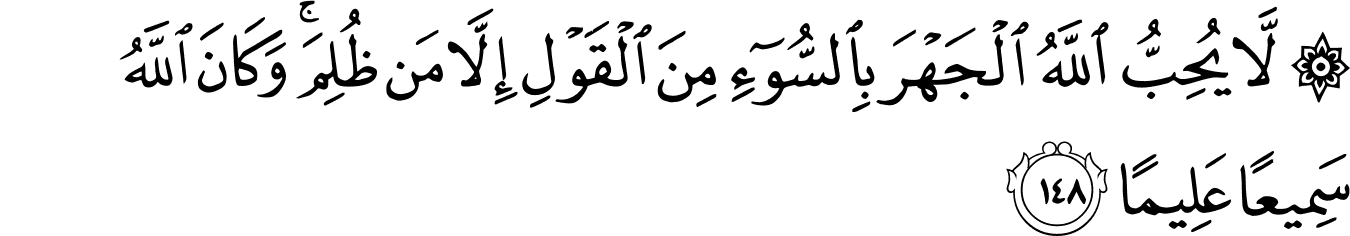 ۞ لَّا يُحِبُّ ٱللَّهُ ٱلْجَهْرَ بِٱلسُّوٓءِ مِنَ ٱلْقَوْلِ إِلَّا مَن ظُلِمَ ۚ وَكَانَ ٱللَّهُ
سَمِيعًا عَلِيمًا ١٤٨